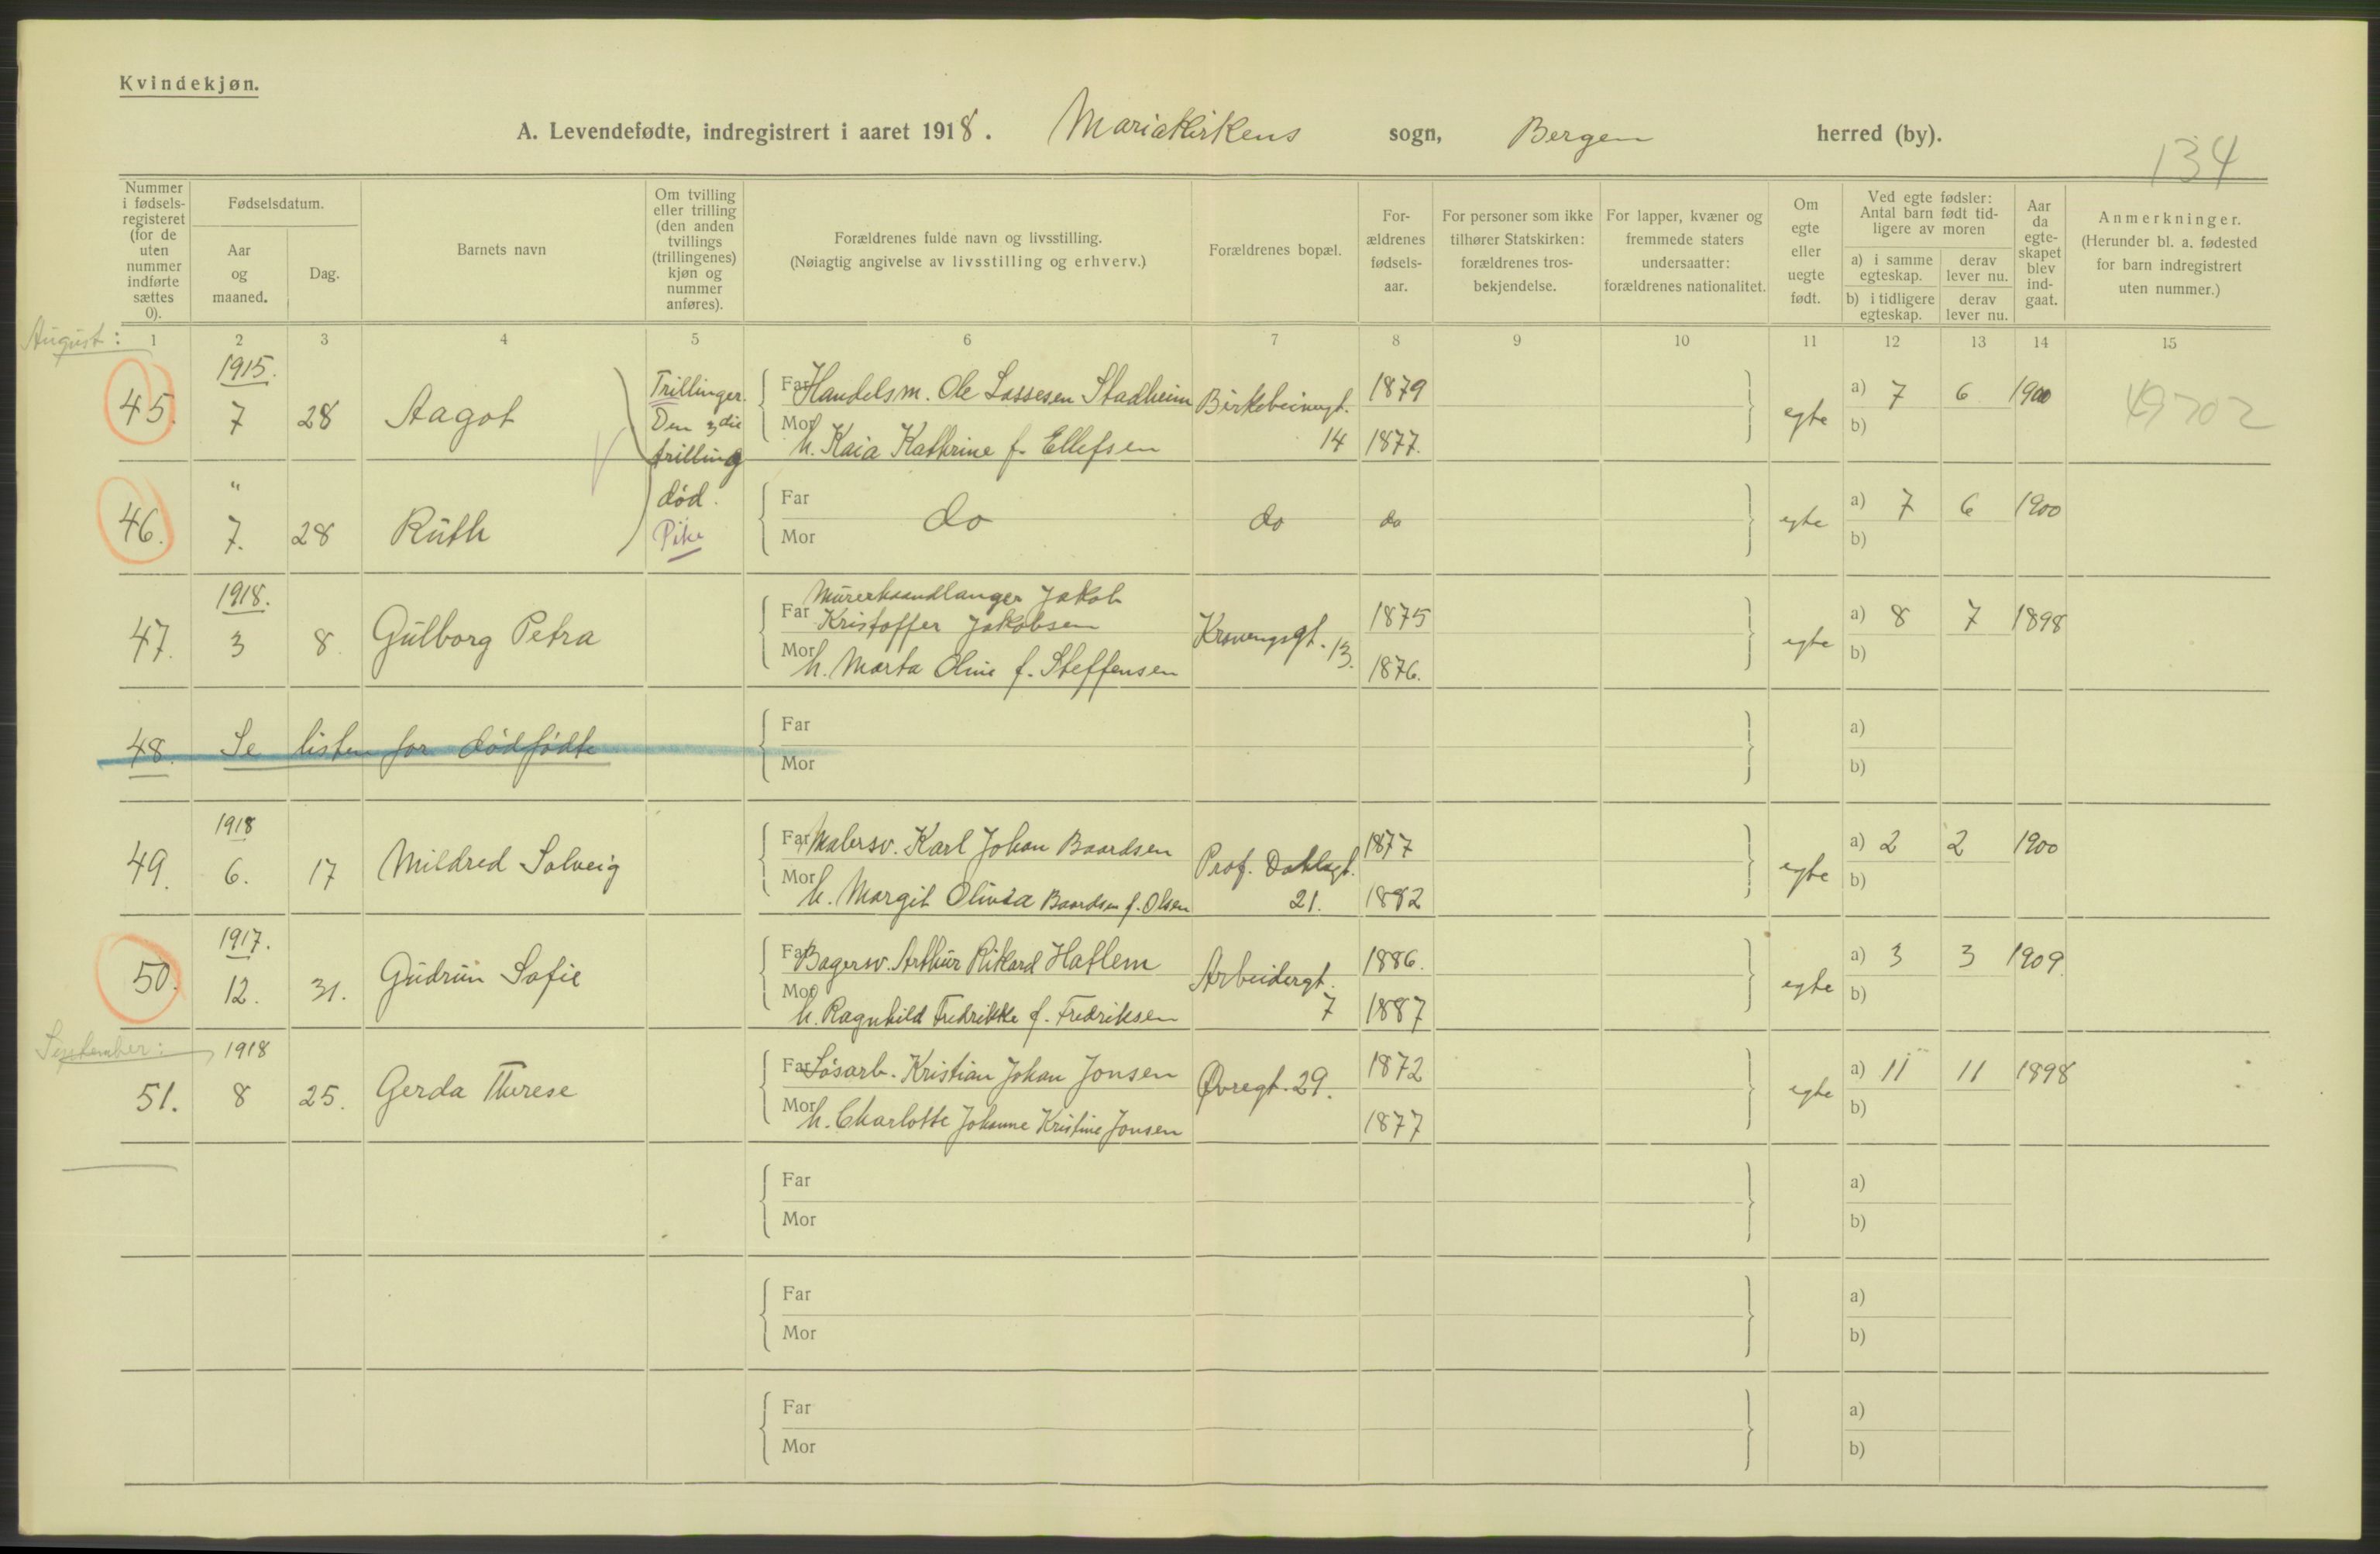 Kvindekjøn.
A. Levendefødte, indregistrert i aaret 1918. Mariakirkens sogn, Bergen herred (by).
134
Nummer i fødsels-registeret (for de uten nummer indførte sættes 0).
Fødselsdatum.
Aar og maaned.
Dag.
Barnets navn
Om tvilling eller trilling (den anden tvillings (trillingenes) kjøn og nummer anføres).
Forældrenes fulde navn og livsstilling.
(Nøiagtig angivelse av livsstilling og erhverv.)
Forældrenes bopæl.
For-ældrenes fødsels-aar.
For personer som ikke tilhører Statskirken: forældrenes tros-bekjendelse.
For lapper, kvæner og fremmede staters undersaatter: forældrenes nationalitet.
Om egte eller uegte født.
Ved egte fødsler: Antal barn født tid-ligere av moren
a) i samme egteskap.
derav lever nu.
b) i tidligere egteskap.
derav lever nu.
Aar da egte-skapet blev ind-gaat.
Anmerkninger.
(Herunder bl. a. fødested for barn indregistrert uten nummer.)
August:
1 2 3 4 5 6 7 8 9 10 11 12 13 14 15
45. 1915. 7 28 Aagot
Trillinger. Den 3die trilling død. Pike
Far Handelsm. Ole Lassesen Stadheim Birkebeinergt. 1879
Mor h. Kaia Kathrine f. Ellefsen 14 1877.
egte a) 7 6 1900 49702
b)
46. " 7. 28 Ruth
Far do do do
Mor
egte a) 7 6 1900
b)
47. 1918. 3 8. Gulborg Petra
Murerhaandlanger Jakob
Far Kristoffer Jakobsen Krovengsgt. 13. 1875
Mor h. Marta Oline f. Steffensen 1876.
egte a) 8 7 1898
b)
48. Se listen for dødfødte
Far
Mor
a)
b)
49. 1918 6. 17 Mildred Solveig
Far Malersv. Karl Johan Baardsen Prof. Dahlsgt. 1877
Mor h. Margit Olivia Baardsen f. Olsen 21. 1882
egte a) 2 2 1900
b)
50. 1917. 12. 31. Gudrun Sofie
Far Bagersv. Arthur Rikard Hatlem Arbeidergt. 1886.
Mor h. Ragnhild Fredrikke f. Fredriksen 7 1887
egte a) 3 3 1909
b)
September:
51. 1918 8 25. Gerda Therese
Far Løsarb. Kristian Johan Jonsen Øvregt. 29. 1872
Mor h. Charlotte Johanne Kristine Jonsen 1877
egte a) 11 11 1898
b)
Far
Mor
a)
b)
Far
Mor
a)
b)
Far
Mor
a)
b)